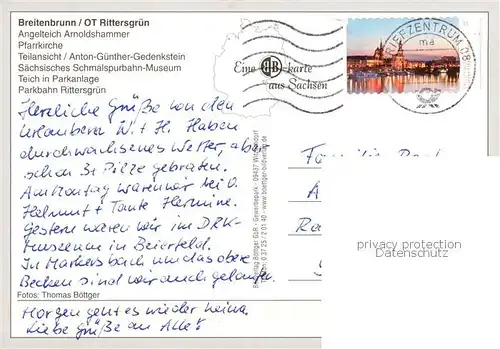 Breitenbrunn / OT Rittersgrün
Angelteich Arnoldshammer
Pfarrkirche
Teilansicht / Anton-Günther-Gedenkstein
Sächsisches Schmalspurbahn-Museum
Teich in Parkanlage
Parkbahn Rittersgrün
Eine karte
aus Sachsen
BRIEFZENTRUM 08
ma
Herzliche Grüße von den
Urlaubern W. + H. Haben
durchwachsenes Wetter, aber
schon 3x Pilze gebraten.
Am Montag waren wir bei O.
Helmut + Tante Hermine.
Gestern waren wir im DRK-
Museum in Beierfeld.
In Markersbach um das obere
Becken sind wir auch gelaufen.
Morgen geht es wieder heim.
Liebe Grüße an Alle!
Fotos: Thomas Böttger
Bildverlag Böttger GbR · Gewerbepark · 09437 Witzschdorf
0 37 25 / 2 01 40 · www.boettger-bildverlag.de
Familie
privacy protection
Datenschutz